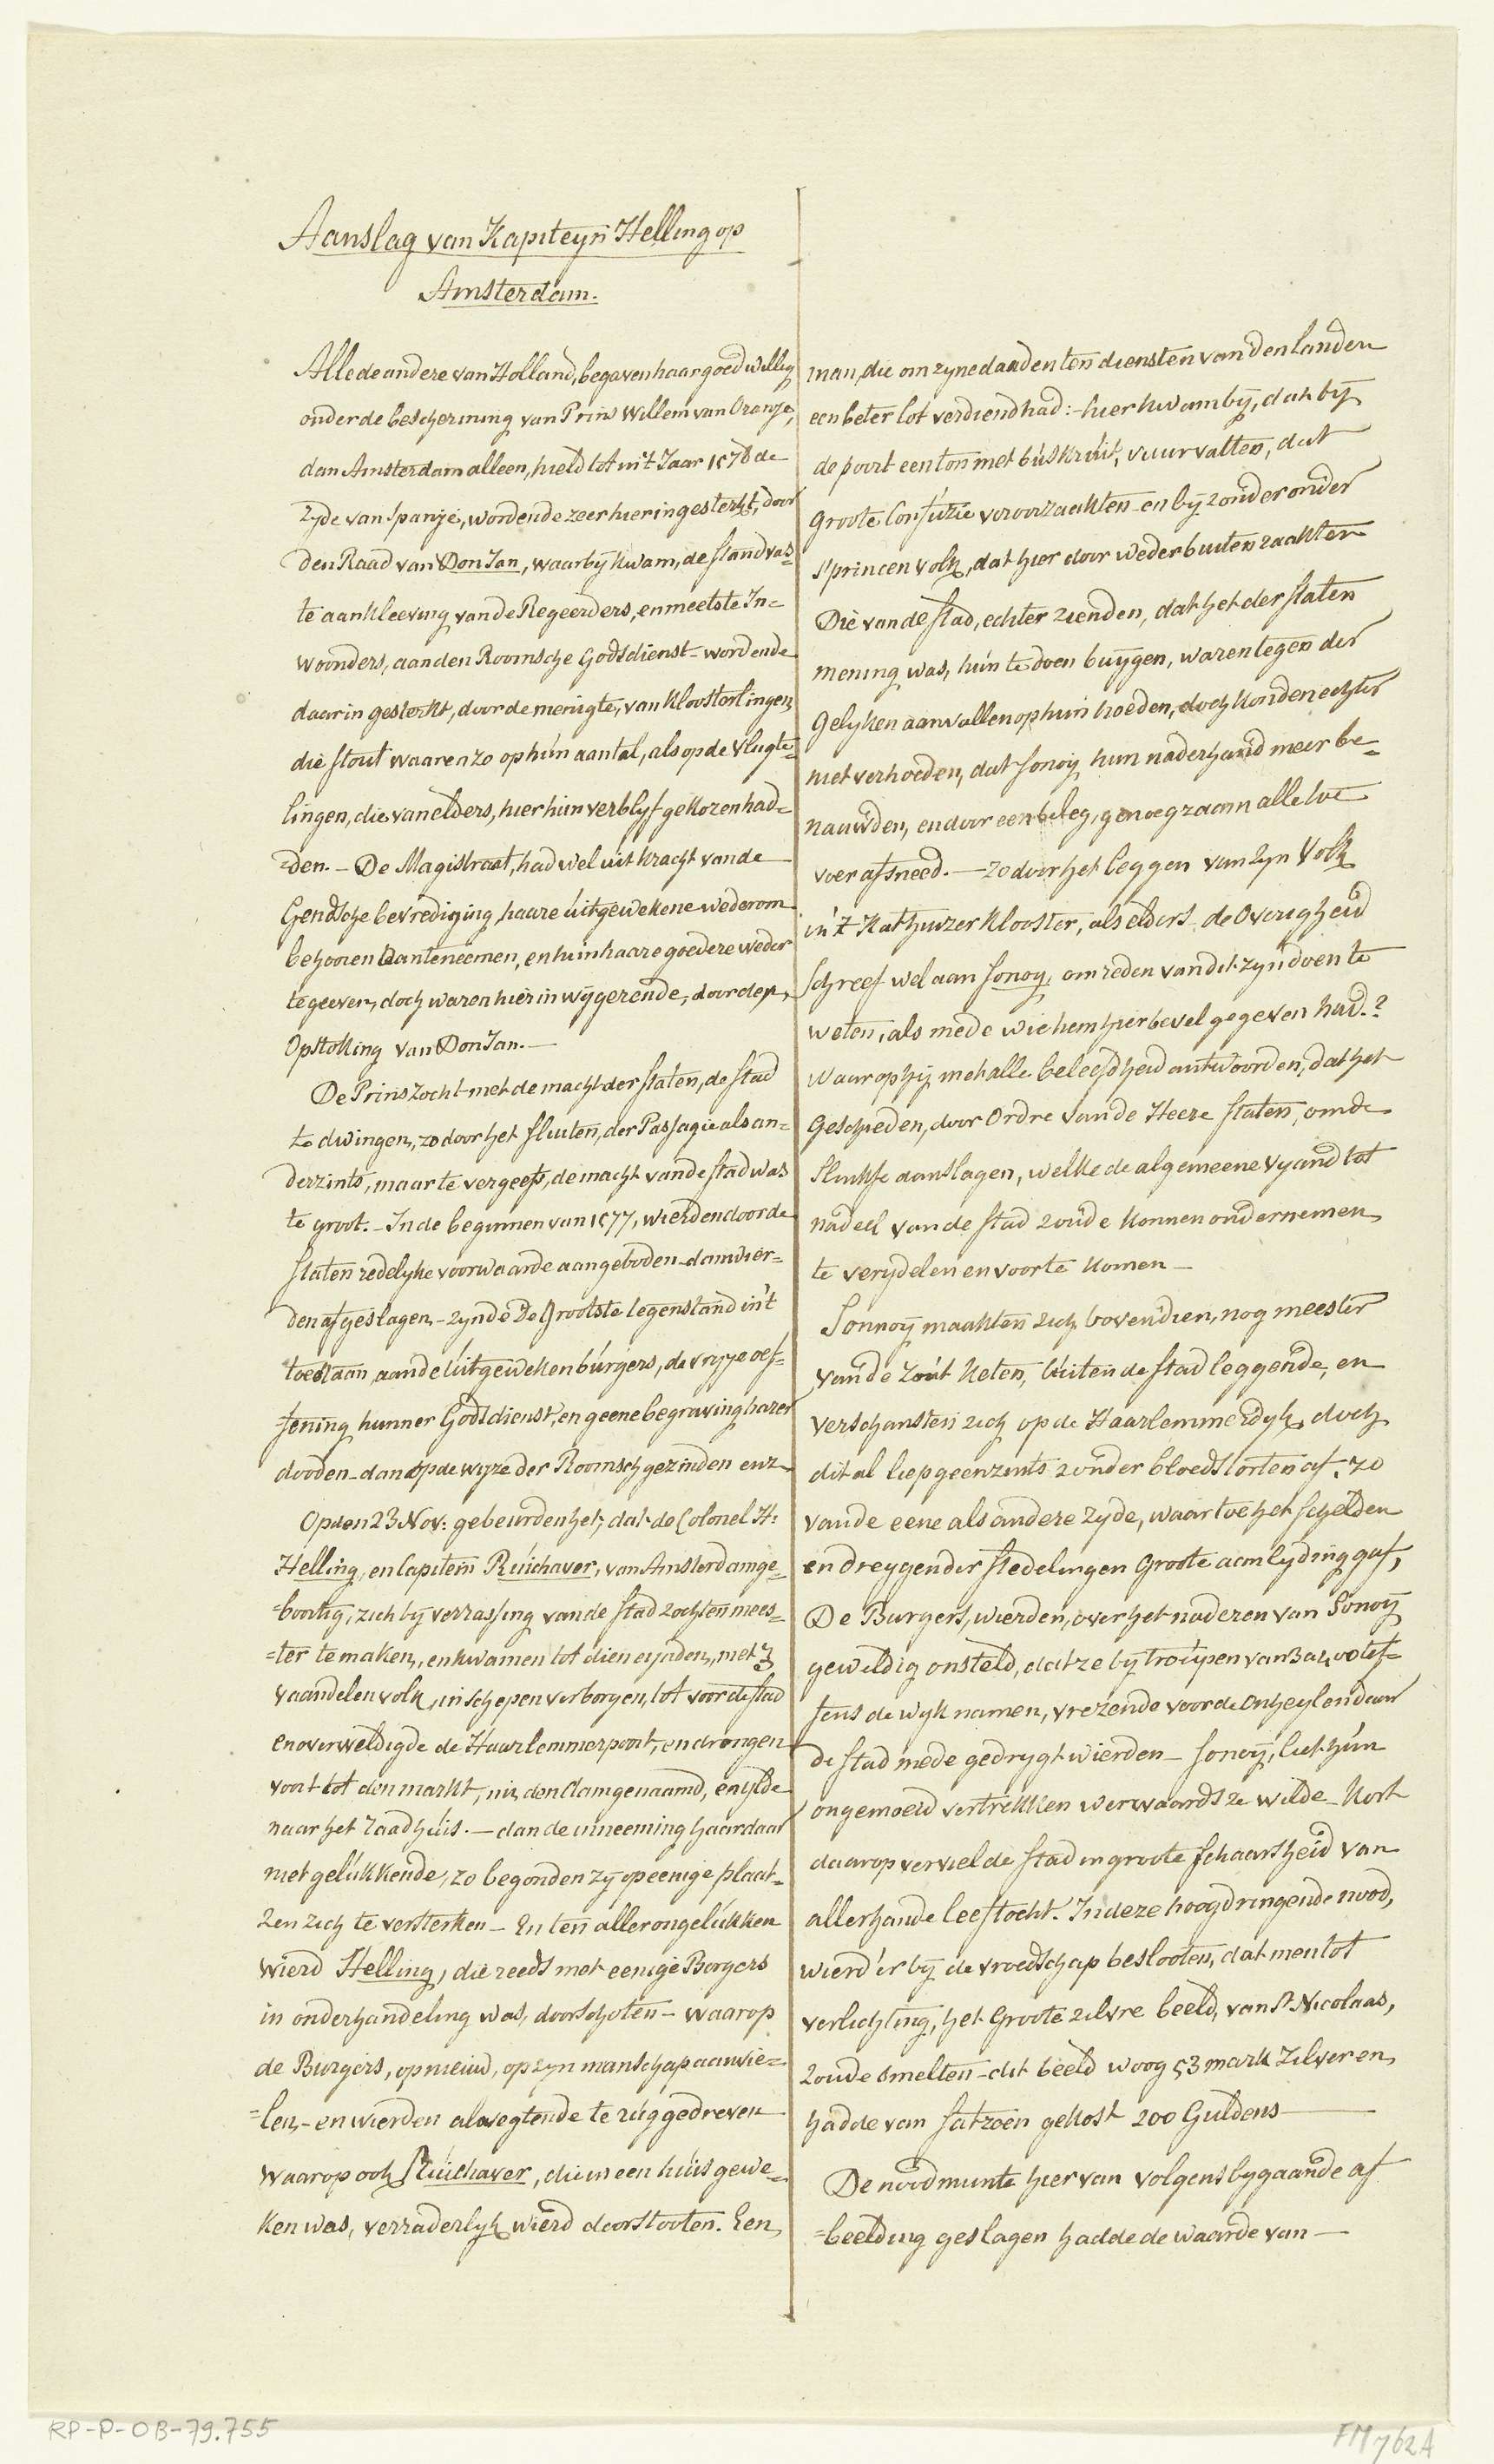 Aanslag van Kapiteyn Helling op
Amsterdam.
Alle de andere van Holland, begaven haar goed willig
onder de bescherming van Prins Willem van Oranje,
dan Amsterdam alleen, hield tot in't Jaar 1578 de
zyde van Spanje, wordende zeer hier in gesterkt, door
den Raad van Don Jan, waar bÿ kwam, de standvas=
te aankleeving van de Regeerders, en meeste In=
woonders, aan den Roomsche Godsdienst - wordende
daar in gesterkt, door de menigte, van Kloosterlingen,
die stout waaren zo op hún aantal, als op de Vlugte=
lingen, die van elders, hier hun verblyf gekozen had=
=den. - De Magistraat, had wel uit kracht van de
Gendsche bevrediging, haare úitgewekene wederom
behooren aan te neemen, en hun haare goedere weder
te geeven, doch waren hier in wÿgerende, door den
Opstoking van Don Jan. -
De Prins zocht met de macht der Staten, de Stad
te dwingen, zo door het sluiten, der Passagie als an=
derzints, maar te vergeefs, de macht van de Stad was
te groot. - In de beginnen van 1577, wierden door de
Staten redelyke voorwaarde aangeboden - dan wier=
den afgeslagen - zynde De Grootste tegenstand in't
toestaan, aan de úitgeweken búrgers, de vryje oef=
=fening hunner Godsdienst, en geene begraving harer
dooden - dan op de wyze der Roomschgezinden enz
Op den 23 Nov: gebeurden het, dat de Colonel H:
Helling, en Capitein Rúichaver, van Amsterdam ge=
=boortig, zich bÿ verrassing van de Stad zochten mees=
=ter te maken, en kwamen tot dien eynden, met 3
vaandelen volk, in schepen verborgen, tot voor de Stad
en overweldigde de Haarlemmerpoort, en drongen
voort tot den markt, nu den dam genaamd, en ylde
naar het raadhúis. - dan de inneeming haar daar
niet gelúkkende, zo begonden zÿ op eenige plaat=
zen zich te versterken - En ten aller ongelúkken
wierd Helling, die reeds met eenige Borgers
in onderhandeling was, doorschoten - waarop
de Burgers, opnieuw, op zyn manschap aanvie=
=len, - en wierden alvegtende te rúg gedreven
waarop ook Rúichaver, die in een húis gewe=
ken was, verraderlyk wierd doorstooten. Een
man, die om zyne daaden ten diensten van den landen
een beter lot verdiend had: - hier kwam bÿ, dat bÿ
de poort een ton met búskrúit, vuur vatten, dat
Groote Confúzie veroorzaakten - en bÿzonder onder
s'princen volk, dat hier door weder buiten raakten
Die van de stad, echter ziende, dat het der Staten
mening was, hún te doen buÿgen, waren tegen der
Gelyken aanvallen op hun hoeden, doch konden echter
niet verhoeden, dat Sonoÿ hun naderhand meer be=
nauwden, en door een beleg, genoegzaam alle toe
voer afsneed. - zo door het leggen van zyn Volk
in't Kathuizer Klooster, als elders de Overigheid
schreef wel aan Sonoy, om reden van dit zyn doen te
weten, als mede wie hem hier bevel gegeven had.?
Waar op hÿ met alle beleefdheid antwoorden, dat het
Geschieden, door Ordre van de Heere Staten, om de
Slinkse aanslagen, welke de algemeene vyand tot
nadeel van de stad zoude konnen ondernemen
te verydelen en voor te komen -
Sonnoÿ maakten zich bovendien, nog meester
van de zout keten, búiten de stad leggende, en
verschansten zich op de Haarlemmerdyk, doch
dit al liep geenzints zonder bloedstorten af, zo
van de eene als andere zyde, waar toe het schelden
en dreygen der stedelingen Groote aanlyding gaf,
De Burgers, wierden, over het naderen van Sonoÿ
geweldig ontsteld, dat ze bÿ troupen van 3 a 400 tef=
fens de wyk namen, vrezende voor de onheylen daar
de stad mede gedrygt wierden - Sonoÿ, liet hún
ongemoeid vertrekken werwaards ze wilde - Kort
daarop verviel de stad in groote schaarsheid van
allerhande leeftocht. In deze hoogdringende nood,
wierd'er bÿ de vroedschap beslooten, dat men tot
verlichting, het Groote zilvre beeld, van St Nicolaas,
zoude smelten - dit beeld woog 53 mark zilver en
hadde van fatzoen gekost 200 Guldens -
De noodmunte hier van volgens bygaande af
=beelding geslagen hadde de waarde van -
RP-P-OB-79.755
FM 762A